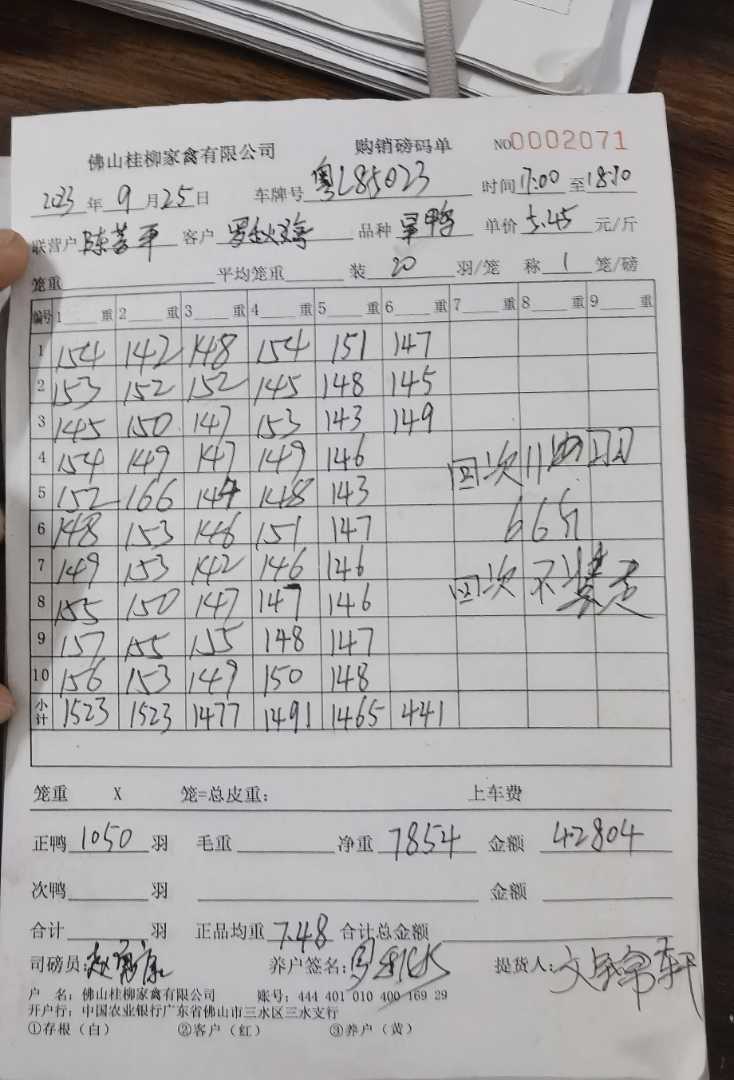 佛山桂柳家禽有限公司 购销磅码单 NO0002071
2023年9月25日 车牌号粤L85023 时间17:00至18:10
联营户 陈 平 客户 罗秋 品种 旱鸭 单价5.45元/斤
笼重 平均笼重 装20羽/笼 称1笼/磅
编号 1 重 2 重 3 重 4 重 5 重 6 重 7 重 8 重 9 重
1 154 142 148 154 151 147
2 153 152 152 145 148 145
3 145 150 147 153 143 149
4 154 149 147 149 146
5 152 166 144 148 143
6 148 153 146 151 147
7 149 153 142 146 146
8 155 150 147 147 146
9 157 155 155 148 147
10 156 153 149 150 148
小计 1523 1523 1477 1491 1465 441
次11
66斤
次不装走
笼重 X 笼=总皮重: 上车费
正鸭1050羽 毛重 净重7854 金额42804
次鸭 羽 金额
合计 羽 正品均重7.48 合计总金额
司磅员: 赵 康 养户签名: 罗 提货人: 文 锦轩
户 名: 佛山桂柳家禽有限公司 账号: 444 401 010 400 169 29
开户行: 中国农业银行广东省佛山市三水区三水支行
①存根（白） ②客户（红） ③养户（黄）